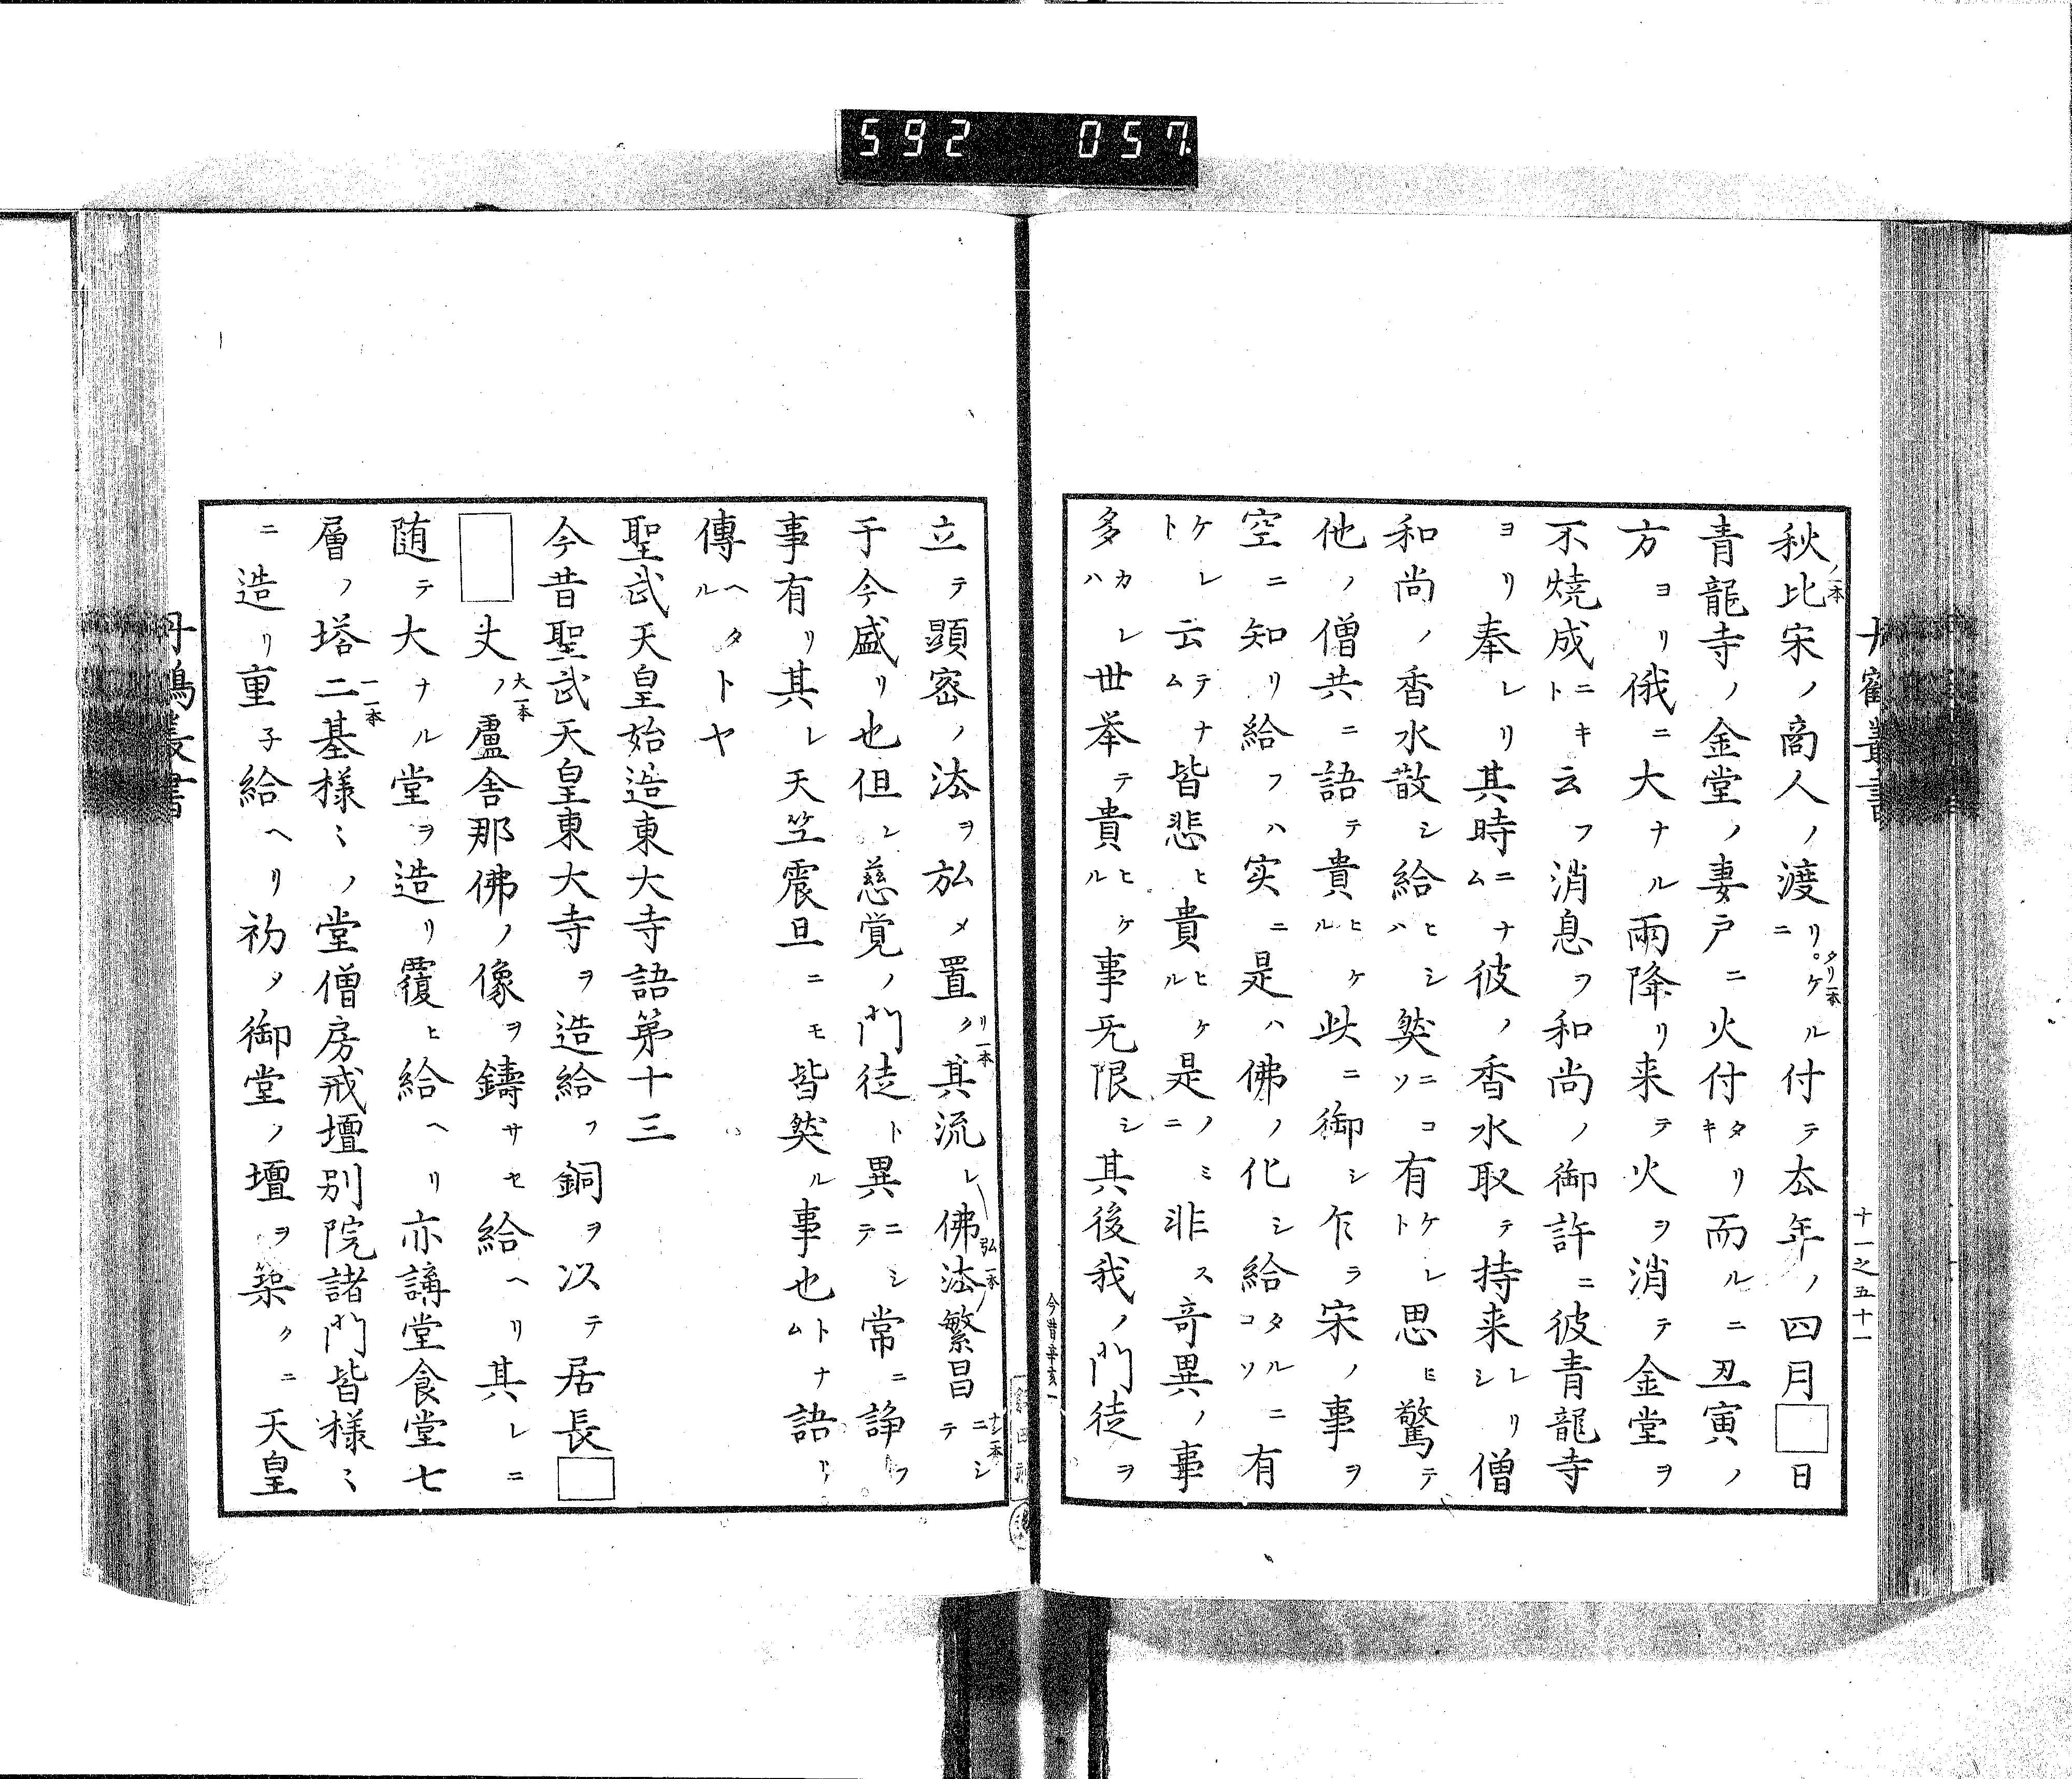 592 057
秋ノ一本比宋ノ商人ノ渡リタリ一本ケルニ付テ去年ノ四月□日
青龍寺ノ金堂ノ妻戸ニ火付タリキ而ルニ丑寅ノ
方ヨリ俄ニ大ナル雨降リ来テ火ヲ消テ金堂ヲ
不燒成ニキト云フ消息ヲ和尚ノ御許ニ彼青龍寺
ヨリ奉レリ其時ニナム彼ノ香水取テ持来レリシ僧
和尚ノ香水散シ給ヒシハ然ニコソ有ケレト思ヒ驚テ
他ノ僧共ニ語テ貴ヒケル此ニ御シ乍ラ宋ノ事ヲ
空ニ知リ給フハ实ニ是ハ佛ノ化シ給タルニコソ有
ケレト云テナム皆悲ヒ貴ヒケル是ノミニ非ス竒異ノ事
多カレハ世举テ貴ヒケル事无限シ其後我ノ門徒ヲ
十一之五十一
今昔辛亥一
立テ顕密ノ法ヲ弘メ置クリ一本其流レ佛弘一本法繁昌ニシテナシ一本
于今盛リ也但シ慈覚ノ門徒ト異ニシテ常ニ諍フ
事有リ其レ天竺震旦ニモ皆然ル事也トナム語リ
傳ヘタルトヤ
聖武天皇始造東大寺語第十三
今昔聖武天皇東大寺ヲ造給フ銅ヲ以テ居長□
□丈ノ大一本盧舎那佛ノ像ヲ鑄サセ給ヘリ其レニ
随テ大ナル堂ヲ造リ覆ヒ給ヘリ亦講堂食堂七
層ノ塔二一一本基様ミノ堂僧房戒壇別院諸門皆様ミ
ニ造リ重子給ヘリ初メ御堂ノ壇ヲ築クニ天皇
丹鶴叢書